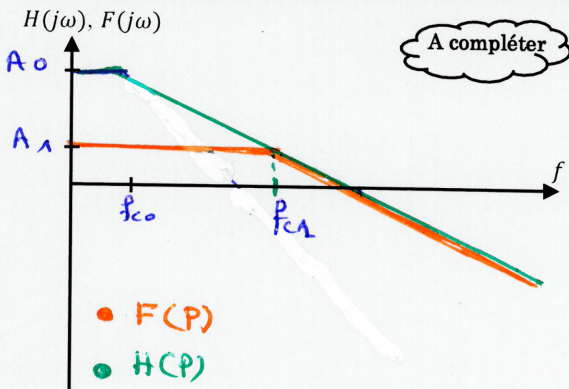 H(jω), F(jω)
A compléter
A0
A1
f
fc0
fc1
F(P)
H(P)